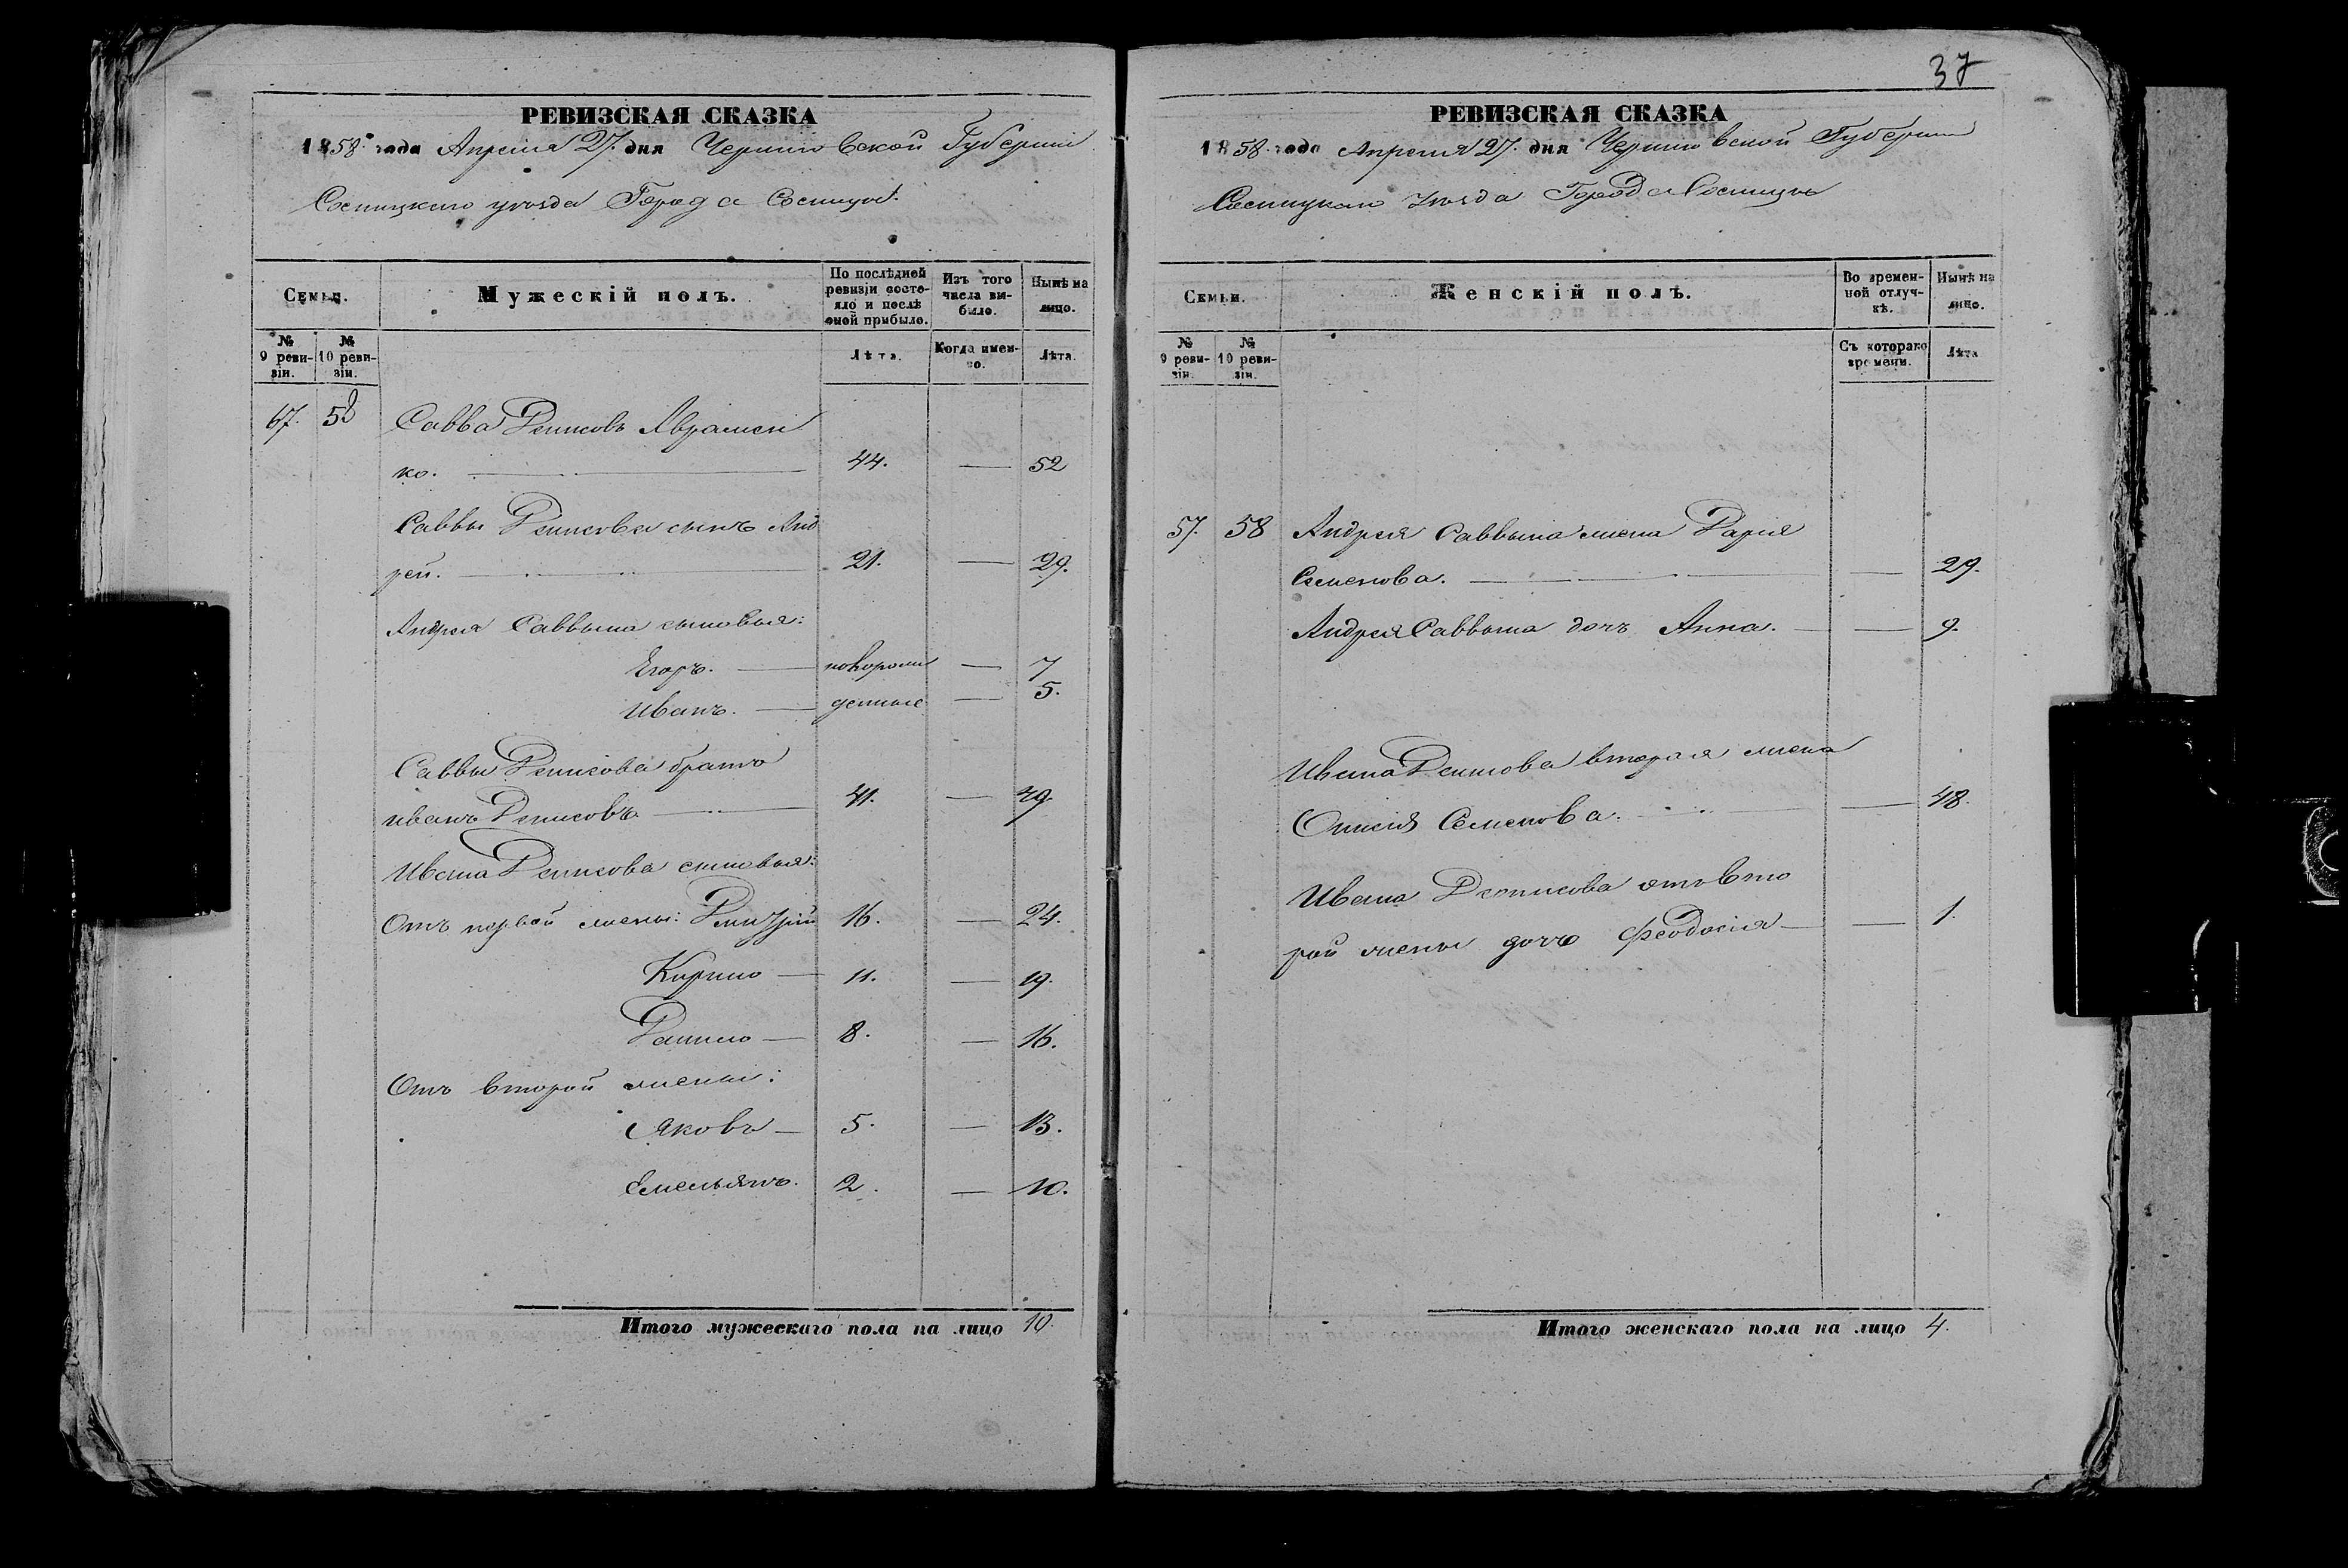 РЕВИЗСКАЯ СКАЗКА
1858 года Апреля 27. дня Черниговской Губернии
Сосницкаго уезда Города Сосницы.
Семьи.
Мужескій полъ.
По послѣдней ревизіи состояло и послѣ оной прибыло.
Изъ того числа выбыло.
Нынѣ на лицо.
№ 9 ревизіи.
№ 10 ревизіи.
Лѣта.
Когда именно.
Лѣта.
58
Савва Денисовъ Аврамен
ко. 44. — 52
Саввы Денисова сынъ Анд
рей. 21. — 29.
Андрея Саввына сыновья:
Егоръ. — новорож — 7
Иванъ. — денные — 5.
Саввы Денисова братъ
Иванъ Денисовъ — 41. — 49.
Ивана Денисова сыновья:
Отъ первой жены: Дмитрій 16. — 24.
Кирило — 11. — 19.
Данило — 8. — 16.
Отъ второй жены:
Яковъ — 5. — 13.
Емельянъ. 2. — 10.
Итого мужескаго пола на лицо 10.
37
РЕВИЗСКАЯ СКАЗКА
1858 года Апреля 27. дня Черниговской Губернии
Сосницкаго Уезда Города Сосницы
Семьи.
Женскій полъ.
Во временной отлучкѣ.
Нынѣ на лицо.
№ 9 ревизіи.
№ 10 ревизіи.
Съ котораго времени.
Лѣта
57. 58 Андрея Саввына жена Дарія
Семенова. — — 29.
Андрея Саввына дочь Анна. — — 9.
Ивана Денисова вторая жена
Семенова. — 48.
Ивана Денисова отъ вто
рой жены дочь Феодосія — — 1.
Итого женскаго пола на лицо 4.